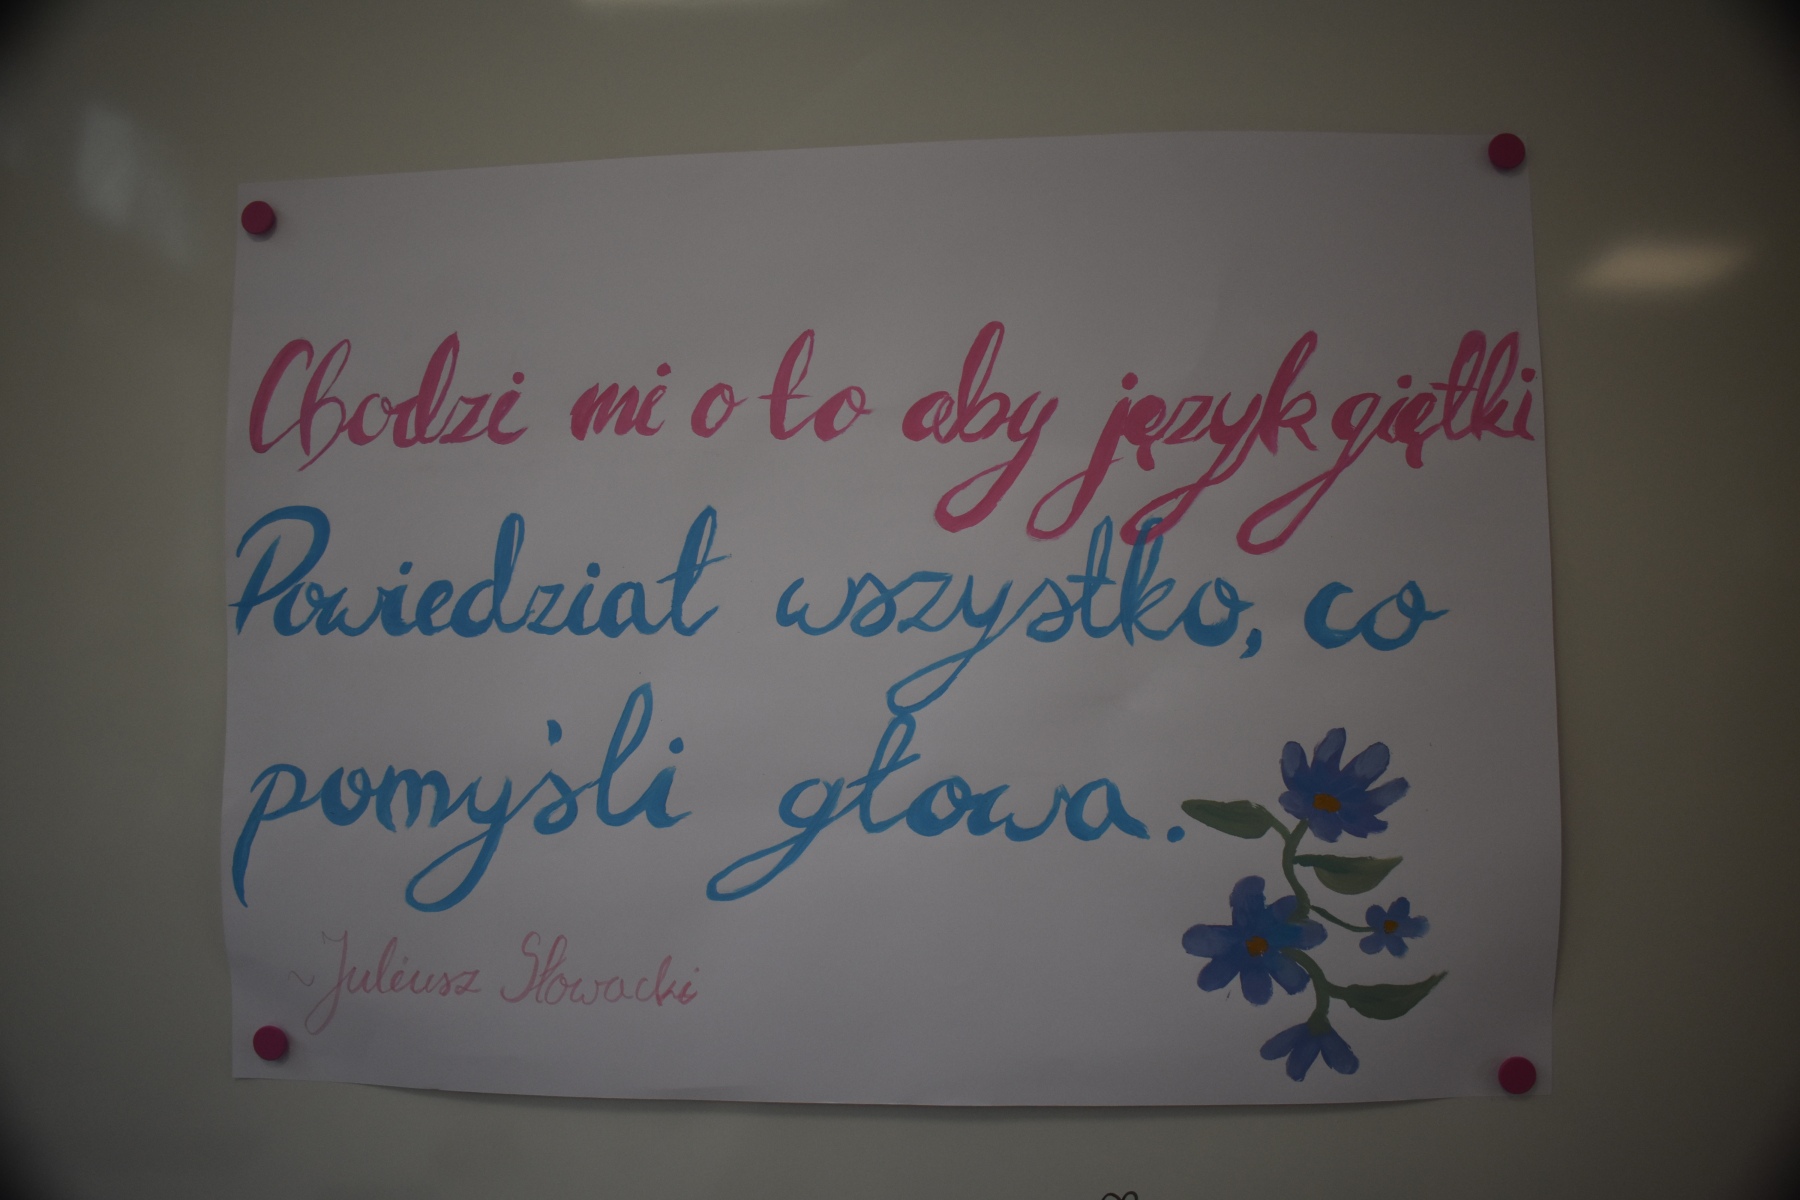 Chodzi mi o to aby język giętki
Powiedział wszystko, co
pomyśli głowa.
~Juliusz Słowacki